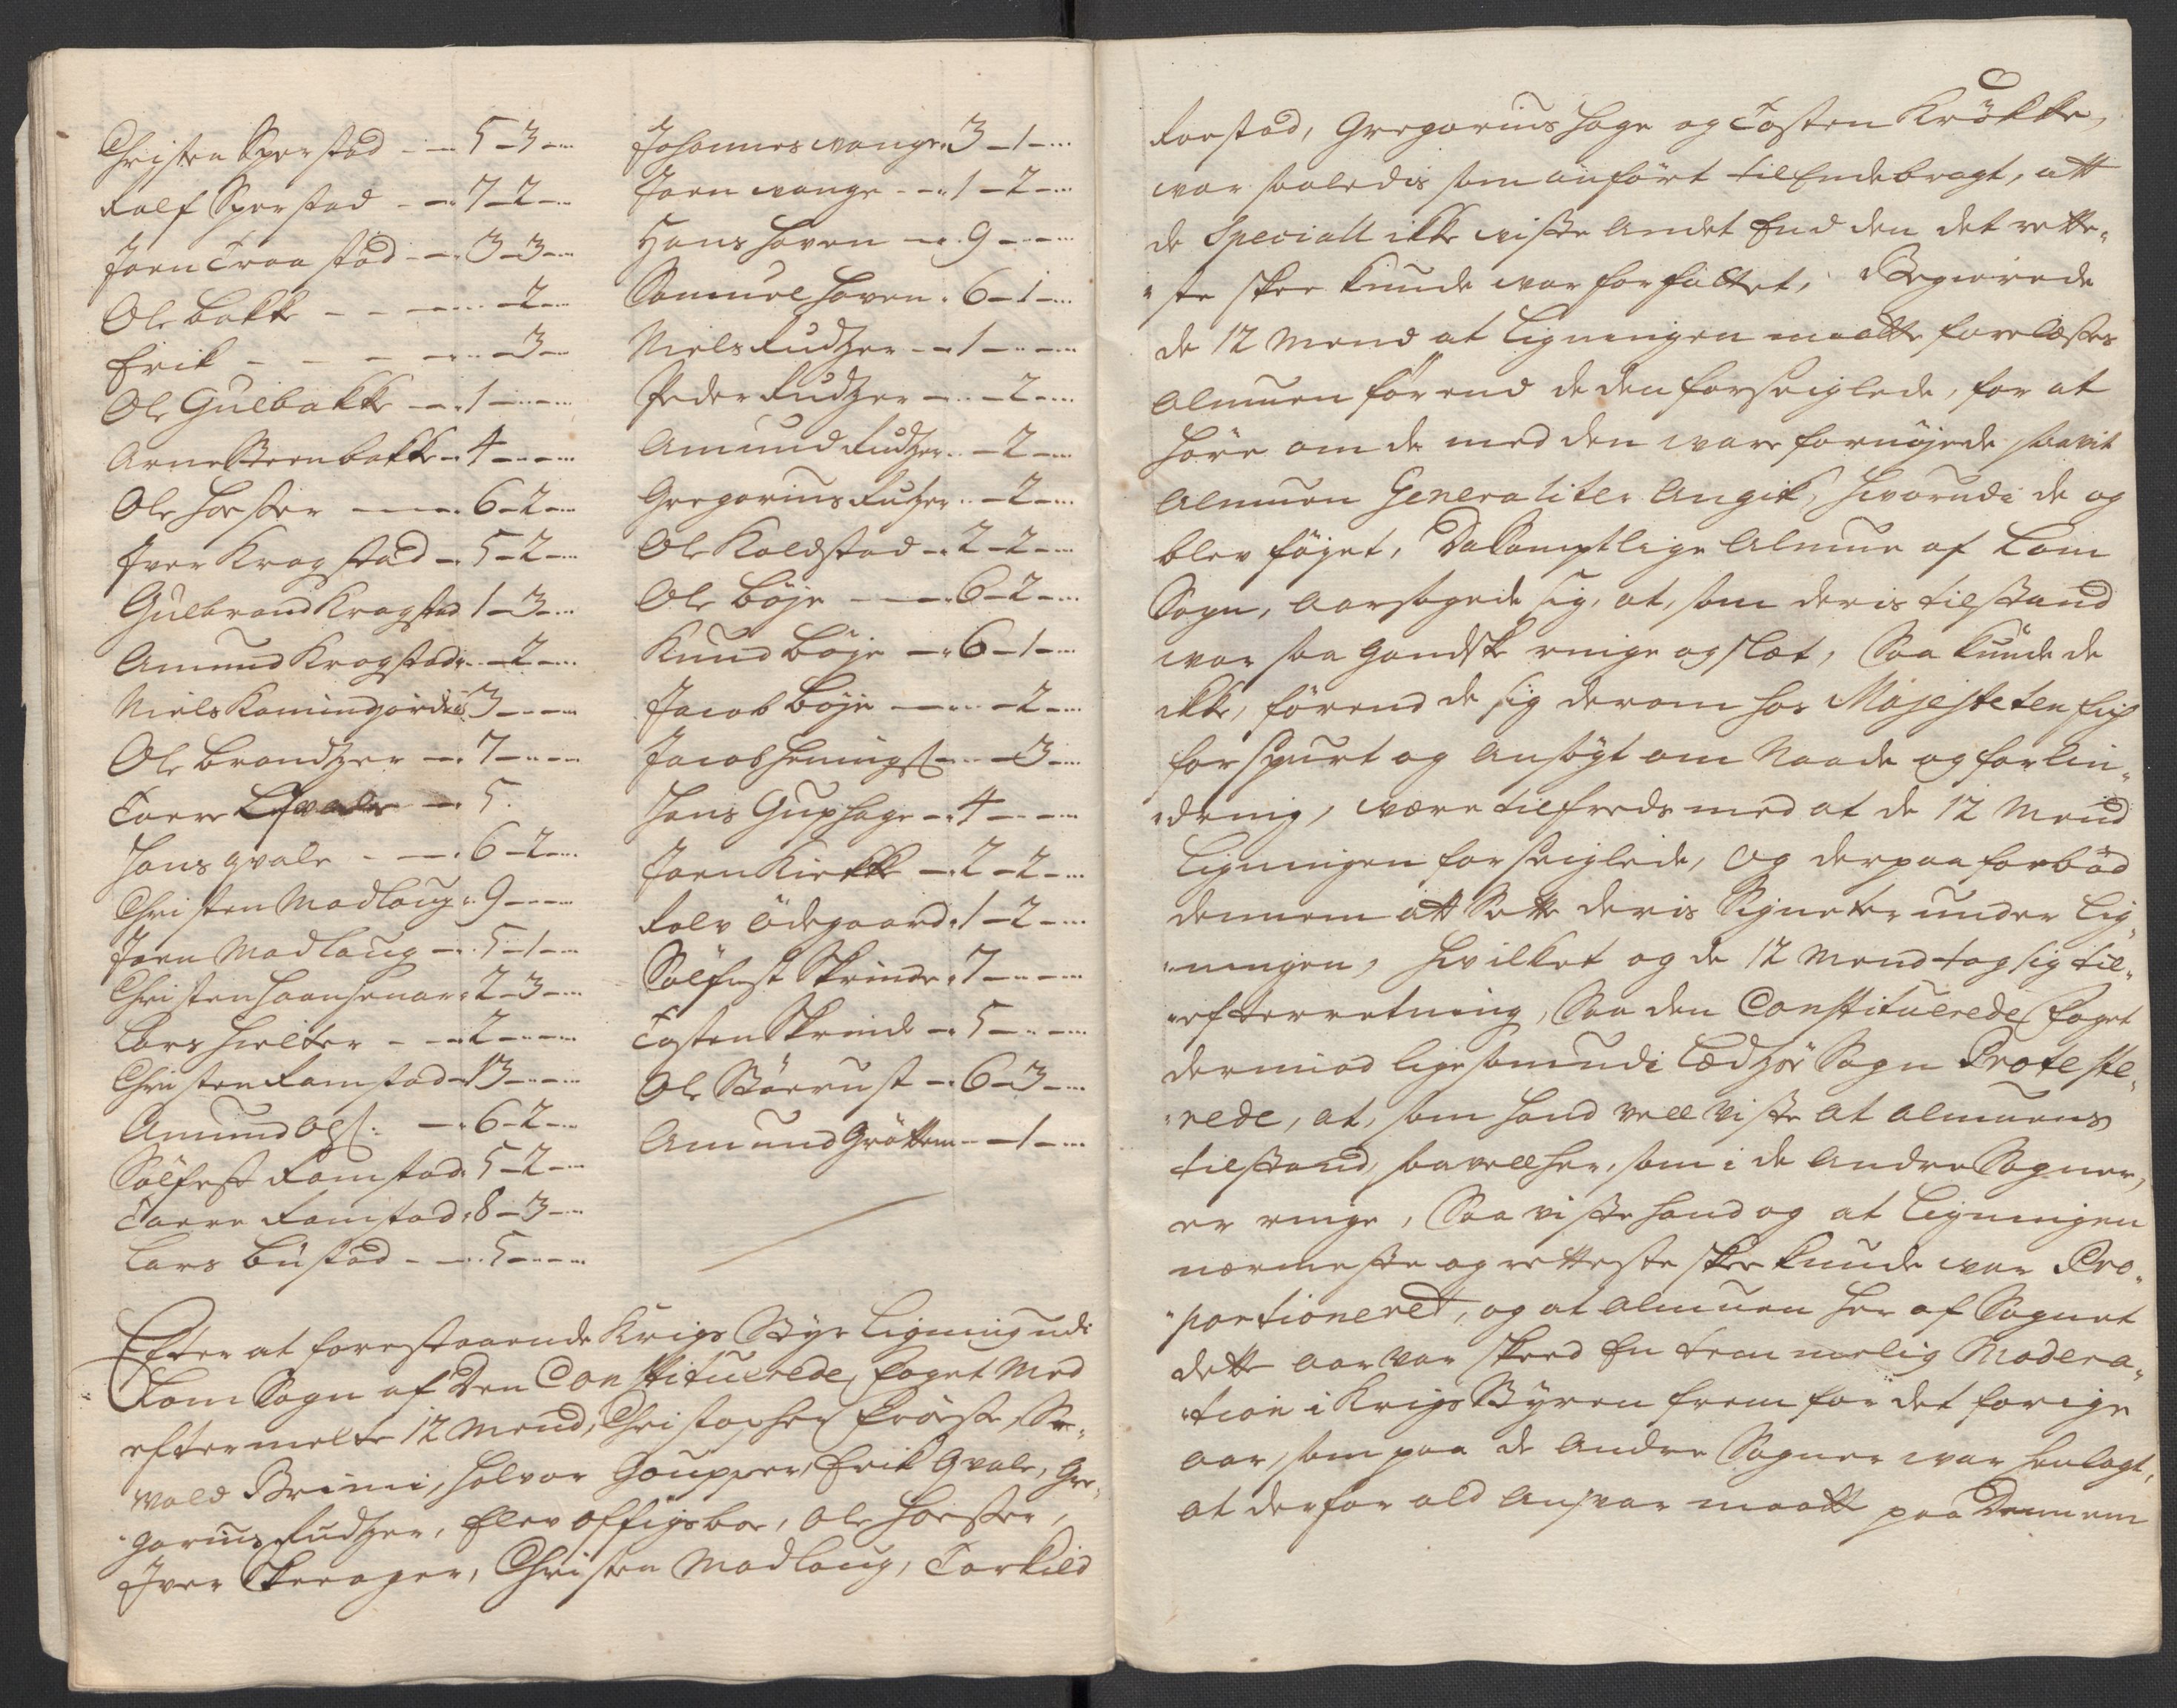 Christen Sperstad - - 5-3-
Rolf Sperstad - - 7-2-
Joen Traastad - - 3-3-
Ole bakke - - - - 2-
Erik - - - - - 3-
Ole Gulbakke - - 1 - -
Arne Steenbakke - 4 - -
Ole Hoester - - 6-2-
Iver Kragstad - 5-2-
Gulbrand Kragstad 1-3-
Amund Kragstad - - 2-
Niels 3 - -
Ole brandzer - - 7 - -
Torre - 5.
Hans qvale - - 6-2-
Christen Madlaug - 9 - -
Joen Madlaug - - 5-1-
Christen 2-3-
Lars Hielter - - 2 - -
Christen Ramstad - 13 - -
Amund Olss: - - 6-2-
Sølfest Ramstad 5-2-
Torre Ramstad 8-3-
Lars Bustad - - 5 - -
Johannes wange 3-1-
Joen wange - - 1-2-
Hans Hoven - - 9 - -
Samuel Hoven - 6-1-
Niels Rudzer - - 1 - -
Peder Rudzer - - - 2-
Amund Rudzer - - 2-
Gregorius Rudzer - - 2-
Ole Koldstad - 2-2-
Ole Böje - - 6-2-
Knud Böje - - 6-1-
Jacob Böje - - - 2-
Jacob Henings: - - 3-
Hans Guphage - 4 - -
Joen Kirkke - 2-2-
Rolv Ödegaard 1-2-
Sølfest Skrinde 7 - -
Tosten Skrinde - 5 - -
Ole Störrust - 6-3-
Amund Gröttem - - 1-
Efter at forestaaende Krigs Styr Ligning udi
Lom Sogn af Den Constituerede foget Med
eftermelte 12 Mend, Christopher Se-
vald Brimi, Halvor Goupper, Erik Qvale, Gre-
gorius Rudzer, Elev Offigsboe, Ole Hoester,
Iver Skeager, Christen Madlaug, Torkild
Roestad, Gregorius Hage og Tosten Krökke,
war saaledis som anført til Ende bragt, att
de Speciall ikke viste andet End den det rette-
ste skee kunde war forfattet, Begierede
de 12 Mend at Ligningen maatte forelæsses
Almuen förend de den forseiglede, for at
höre om de med den ware fornöyede saavit
Almuen Generaliter angik, hvorudi de og
blev föyet, Da samptlige Almue af Lom
Sogn, aarsagede sig, at, som deris tilstand
war saa gandske ringe og slæt, Saa kunde de
ikke, förend de sig derom hos Majesteten fich
forspurt og ansögt om Naade og forlin-
dring, være tilfreds med at de 12 Mend
Ligningen forseiglede, og derpaa forböd
dennem att Sette deris Signeter under Lig-
ningen, hvilket og de 12 Mend tog sig til-
efterretning, Saa den Constituerede foget
dermod ligesom udi Sogn Proteste-
rede, at, som hand vell viste at almuens
tilstand, saavell her, som i de andre Sogner,
er ringe, Saa viste hand og at Ligningen
nærmeste og retteste skee kunde war Pro-
portioneret, og at almuen her af Sognet
dette aar var skeed En temmelig Modera-
tion i Krigs Styren frem for det forige
aar, som paa de andre Sogner war henlagt,
at derfor ald ansvar maatte paa Dennem